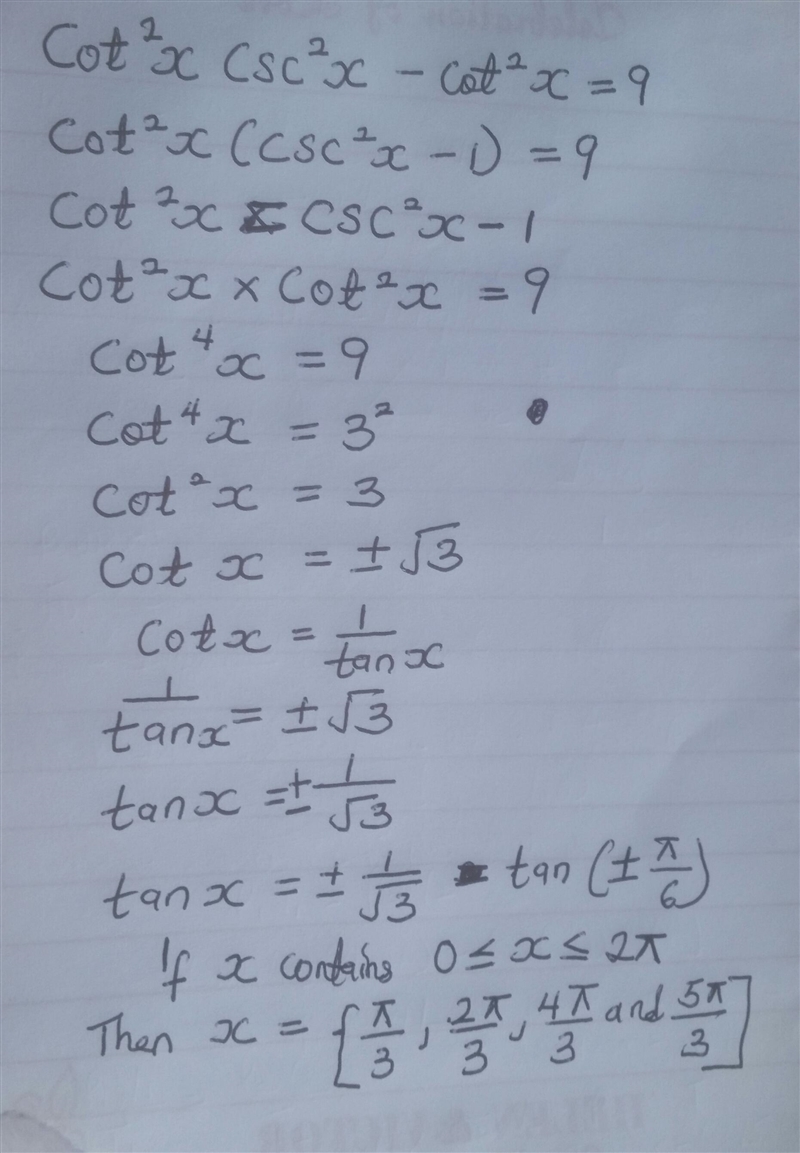 Cot²x Csc²x - cot²x = 9
Cot²x (csc²x - 1) = 9
Cot²x = CSC²x - 1
Cot²x × Cot²x = 9
Cot⁴x = 9
Cot⁴x = 3²
Cot²x = 3
Cot x = ± √3
Cot x = 1/tan x
1/tan x = ± √3
tan x = ± 1/√3
tan x = ± 1/√3 = tan (± π/6)
If x contains 0 ≤ x ≤ 2π
Then x = [π/3, 2π/3, 4π/3 and 5π/3]